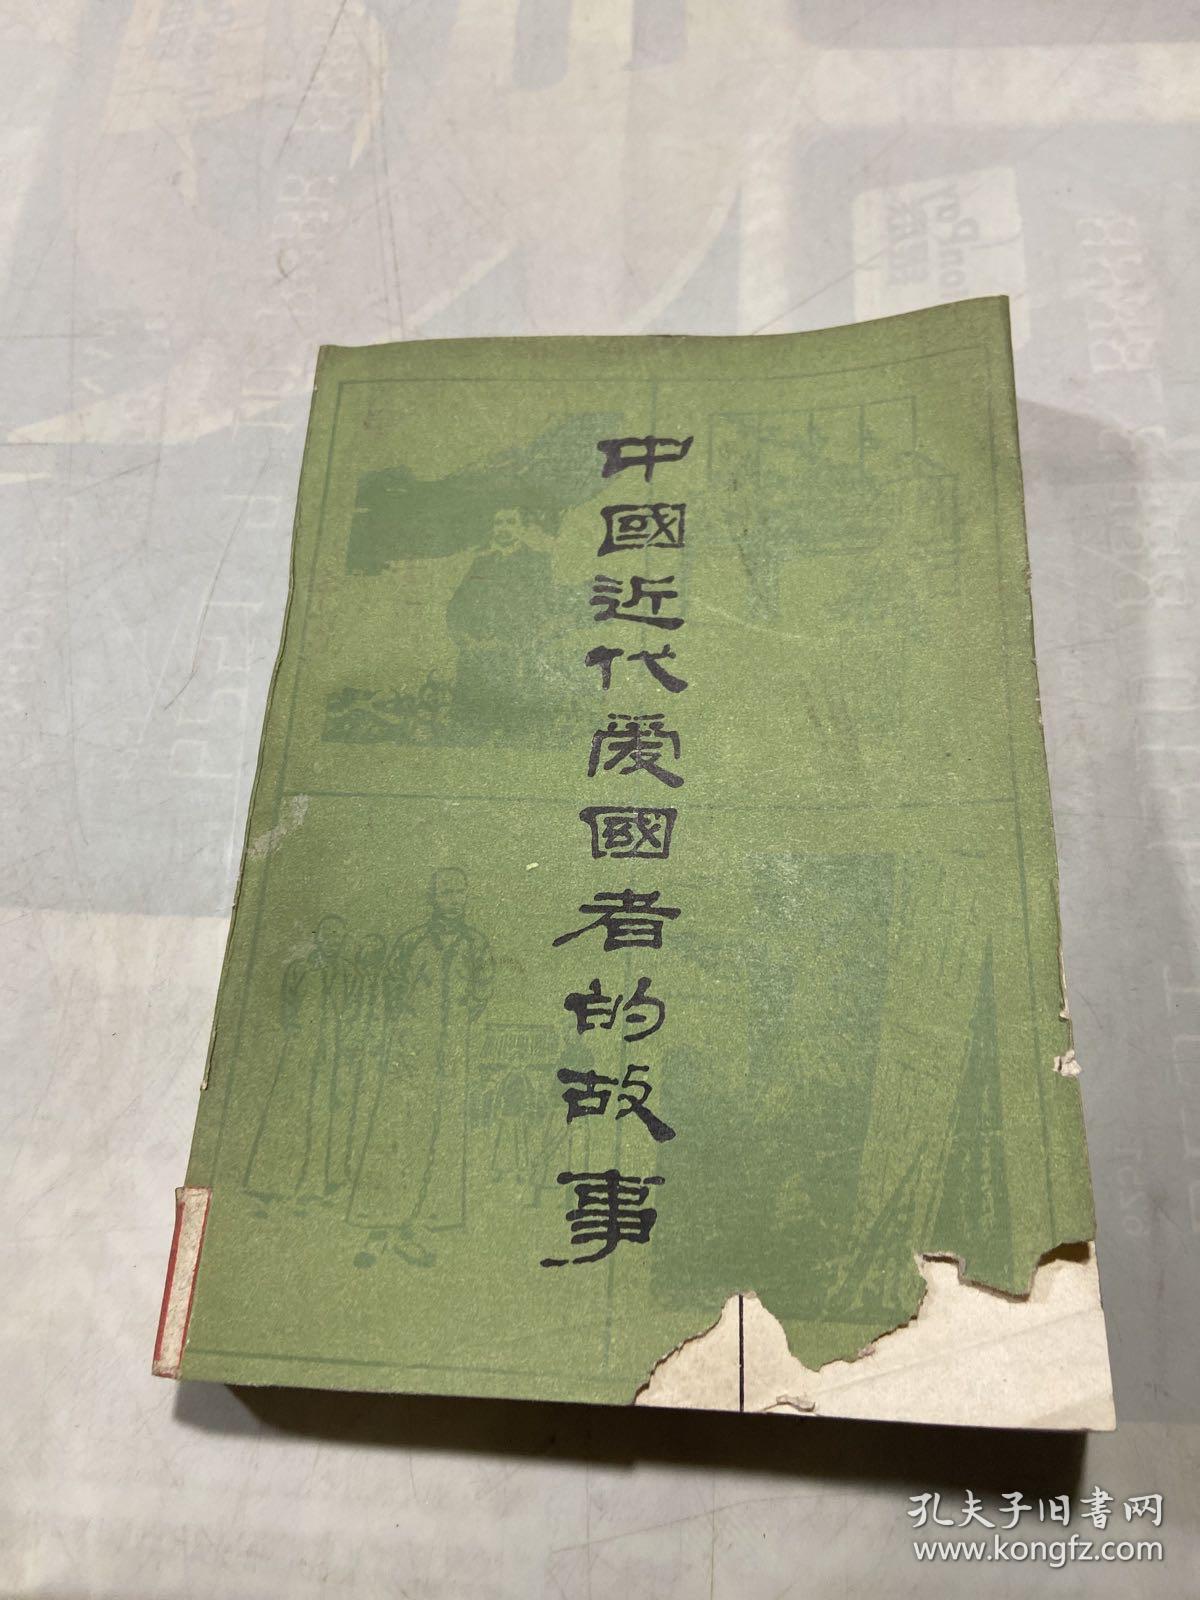 中國近代爱國者的故事
孔夫子旧書网
www.kongfz.com